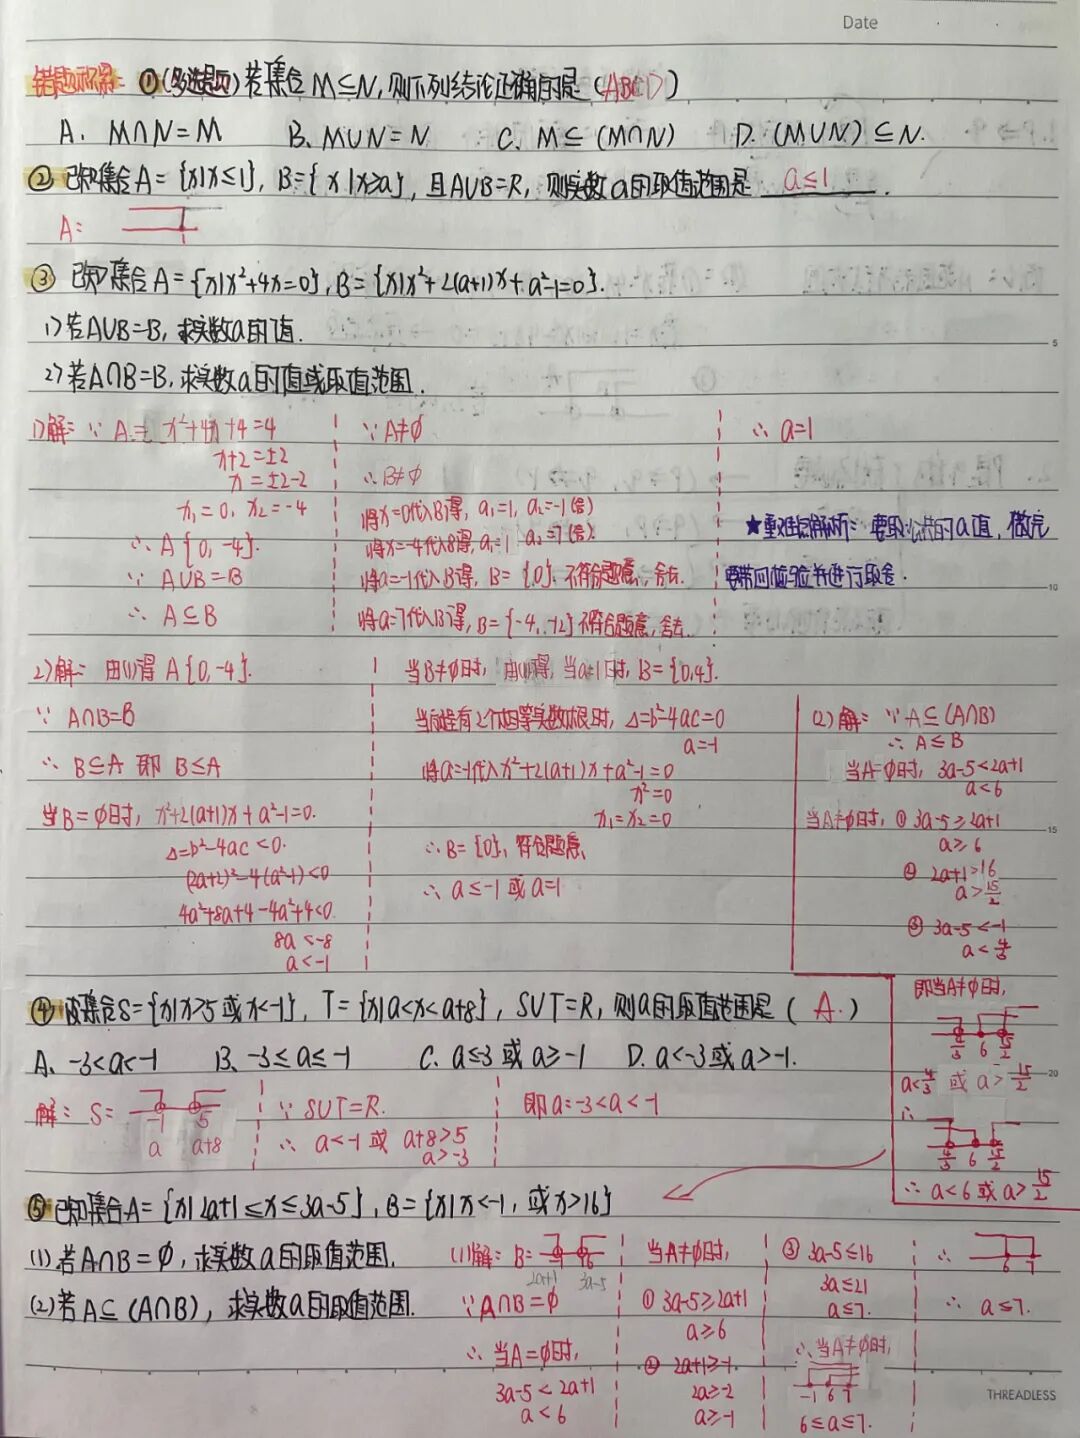 Date
错题积累: ①(多选题)若集合M⊆N,则下列结论正确的是(ABCD)
A. M∩N=M B. M∪N=N C. M⊆(M∩N) D. (M∪N)⊆N.
② 已知集合A={x|x≤1},B={x|x≥a},且A∪B=R,则实数a的取值范围是 a≤1 .
A: 1
③ 已知集合A={x|x²+4x=0},B={x|x²+2(a+1)x+a²-1=0}.
1)若A∪B=B,求实数a的值.
2)若A∩B=B,求实数a的值或取值范围.
1)解:∵ A= x²+4x+4=4
x+2=±2
x=±2-2
x₁=0, x₂=-4
∴ A{0,-4}.
∵ A∪B=B
∴ A⊆B
∵A≠∅
∴B≠∅
将x=0代入B得, a₁=1, a₂=-1(舍)
将x=-4代入B得, a₁=1 a₂=7(舍).
将a=-1代入B得, B={0}.不符合题意,舍去.
将a=7代入B得, B={-4,-12}不符合题意,舍去.
∴ a=1
★重难点解析:要取公共的a值,做完
要带回检验并进行取舍.
2)解: 由(1)得 A{0,-4}.
∵ A∩B=B
∴ B⊆A 即 B≤A
当B=∅时, x²+2(a+1)x+a²-1=0.
Δ=b²-4ac<0.
(2a+2)²-4(a²-1)<0
4a²+8a+4-4a²+4<0.
8a<-8
a<-1
当B≠∅时, 由(1)得,当a=1时, B={0,4}.
当方程有2个相等实数根时, Δ=b²-4ac=0
a=-1
将a=-1代入x²+2(a+1)x+a²-1=0
x²=0
x₁=x₂=0
∴B={0},符合题意,
∴ a≤-1 或 a=1
(2)解: ∵A⊆(A∩B)
∴ A≤B
当A=∅时, 3a-5<2a+1
a<6
当A≠∅时, ① 3a-5≥2a+1
a≥6
② 2a+1>16
a>15/2
③ 3a-5<-1
a<4/3
即当A≠∅时,
4/3 6 15/2
a<4/3 或 a>15/2
∴
4/3 6 15/2
∴ a<6或a>15/2
④ 设集合S={x|x>5或x<-1}, T={x|a<x<a+8}, S∪T=R,则a的取值范围是( A.)
A. -3<a<-1 B. -3≤a≤-1 C. a≤3 或 a≥-1 D. a<-3或a>-1.
解: S= -1 5
a a+8
∵ S∪T=R.
∴ a<-1 或 a+8>5
a>-3
即a=-3<a<-1
⑤已知集合A={x|2a+1≤x≤3a-5},B={x|x<-1,或x>16}
(1)若A∩B=∅,求实数a的取值范围.
(2)若A⊆(A∩B),求实数a的取值范围.
(1)解: B= -1 16
2a+1 3a-5
∵A∩B=∅
∴ 当A=∅时,
3a-5<2a+1
a<6
当A≠∅时,
① 3a-5≥2a+1
a≥6
② 2a+1≥-1.
2a≥-2
a≥-1
③ 3a-5≤16
3a≤21
a≤7.
∴当A≠∅时,
-1 6 7
6≤a≤7.
∴ 6 7
∴ a≤7.
5
10
15
20
THREADLESS